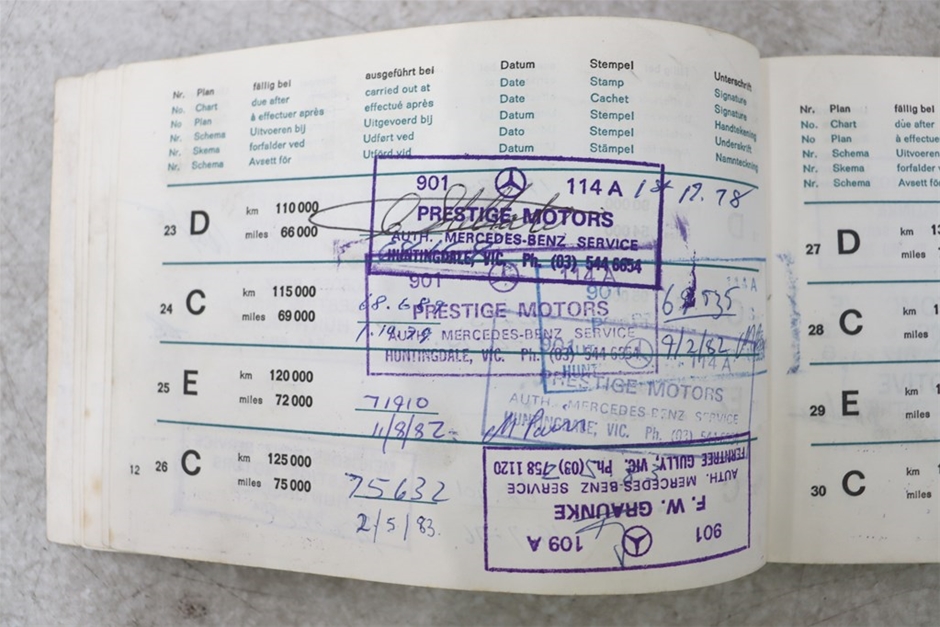 Nr. Plan fällig bei ausgeführt bei Datum Stempel Unterschrift
No. Chart due after carried out at Date Stamp Signature
No Plan à effectuer après effectué après Date Cachet Signature
Nr. Schema Uitvoeren bij Uitgevoerd bij Datum Stempel Handtekening
Nr. Skema forfalder ved Udført ved Dato Stempel Underskrift
Nr. Schema Avsett för Utförd vid Datum Stämpel Namnteckning
901 114 A 1st 12.78
PRESTIGE MOTORS
AUTH. MERCEDES-BENZ SERVICE
HUNTINGDALE, VIC. Ph. (03) 544 6654
23 D km 110 000
miles 66 000
901 114 A
PRESTIGE MOTORS
AUTH. MERCEDES-BENZ SERVICE
HUNTINGDALE, VIC. Ph. (03) 544 6654
24 C km 115 000
miles 69 000
901
9/2/82
114 A
PRESTIGE MOTORS
AUTH. MERCEDES-BENZ SERVICE
HUNTINGDALE, VIC. Ph. (03)
25 E km 120 000
miles 72 000
71910
11/8/82
12 26 C km 125 000
miles 75 000
75632
2/5/83.
901 109 A
F. W. GRAUNKE
AUTH. MERCEDES-BENZ SERVICE
FERNTREE GULLY, VIC. Ph. (03) 758 1120
Nr. Plan fällig bei
No. Chart due after
No Plan à effectue
Nr. Schema Uitvoeren
Nr. Skema forfalder
Nr. Schema Avsett fö
27 D km
miles
28 C km
miles
29 E km
miles
30 C km
miles